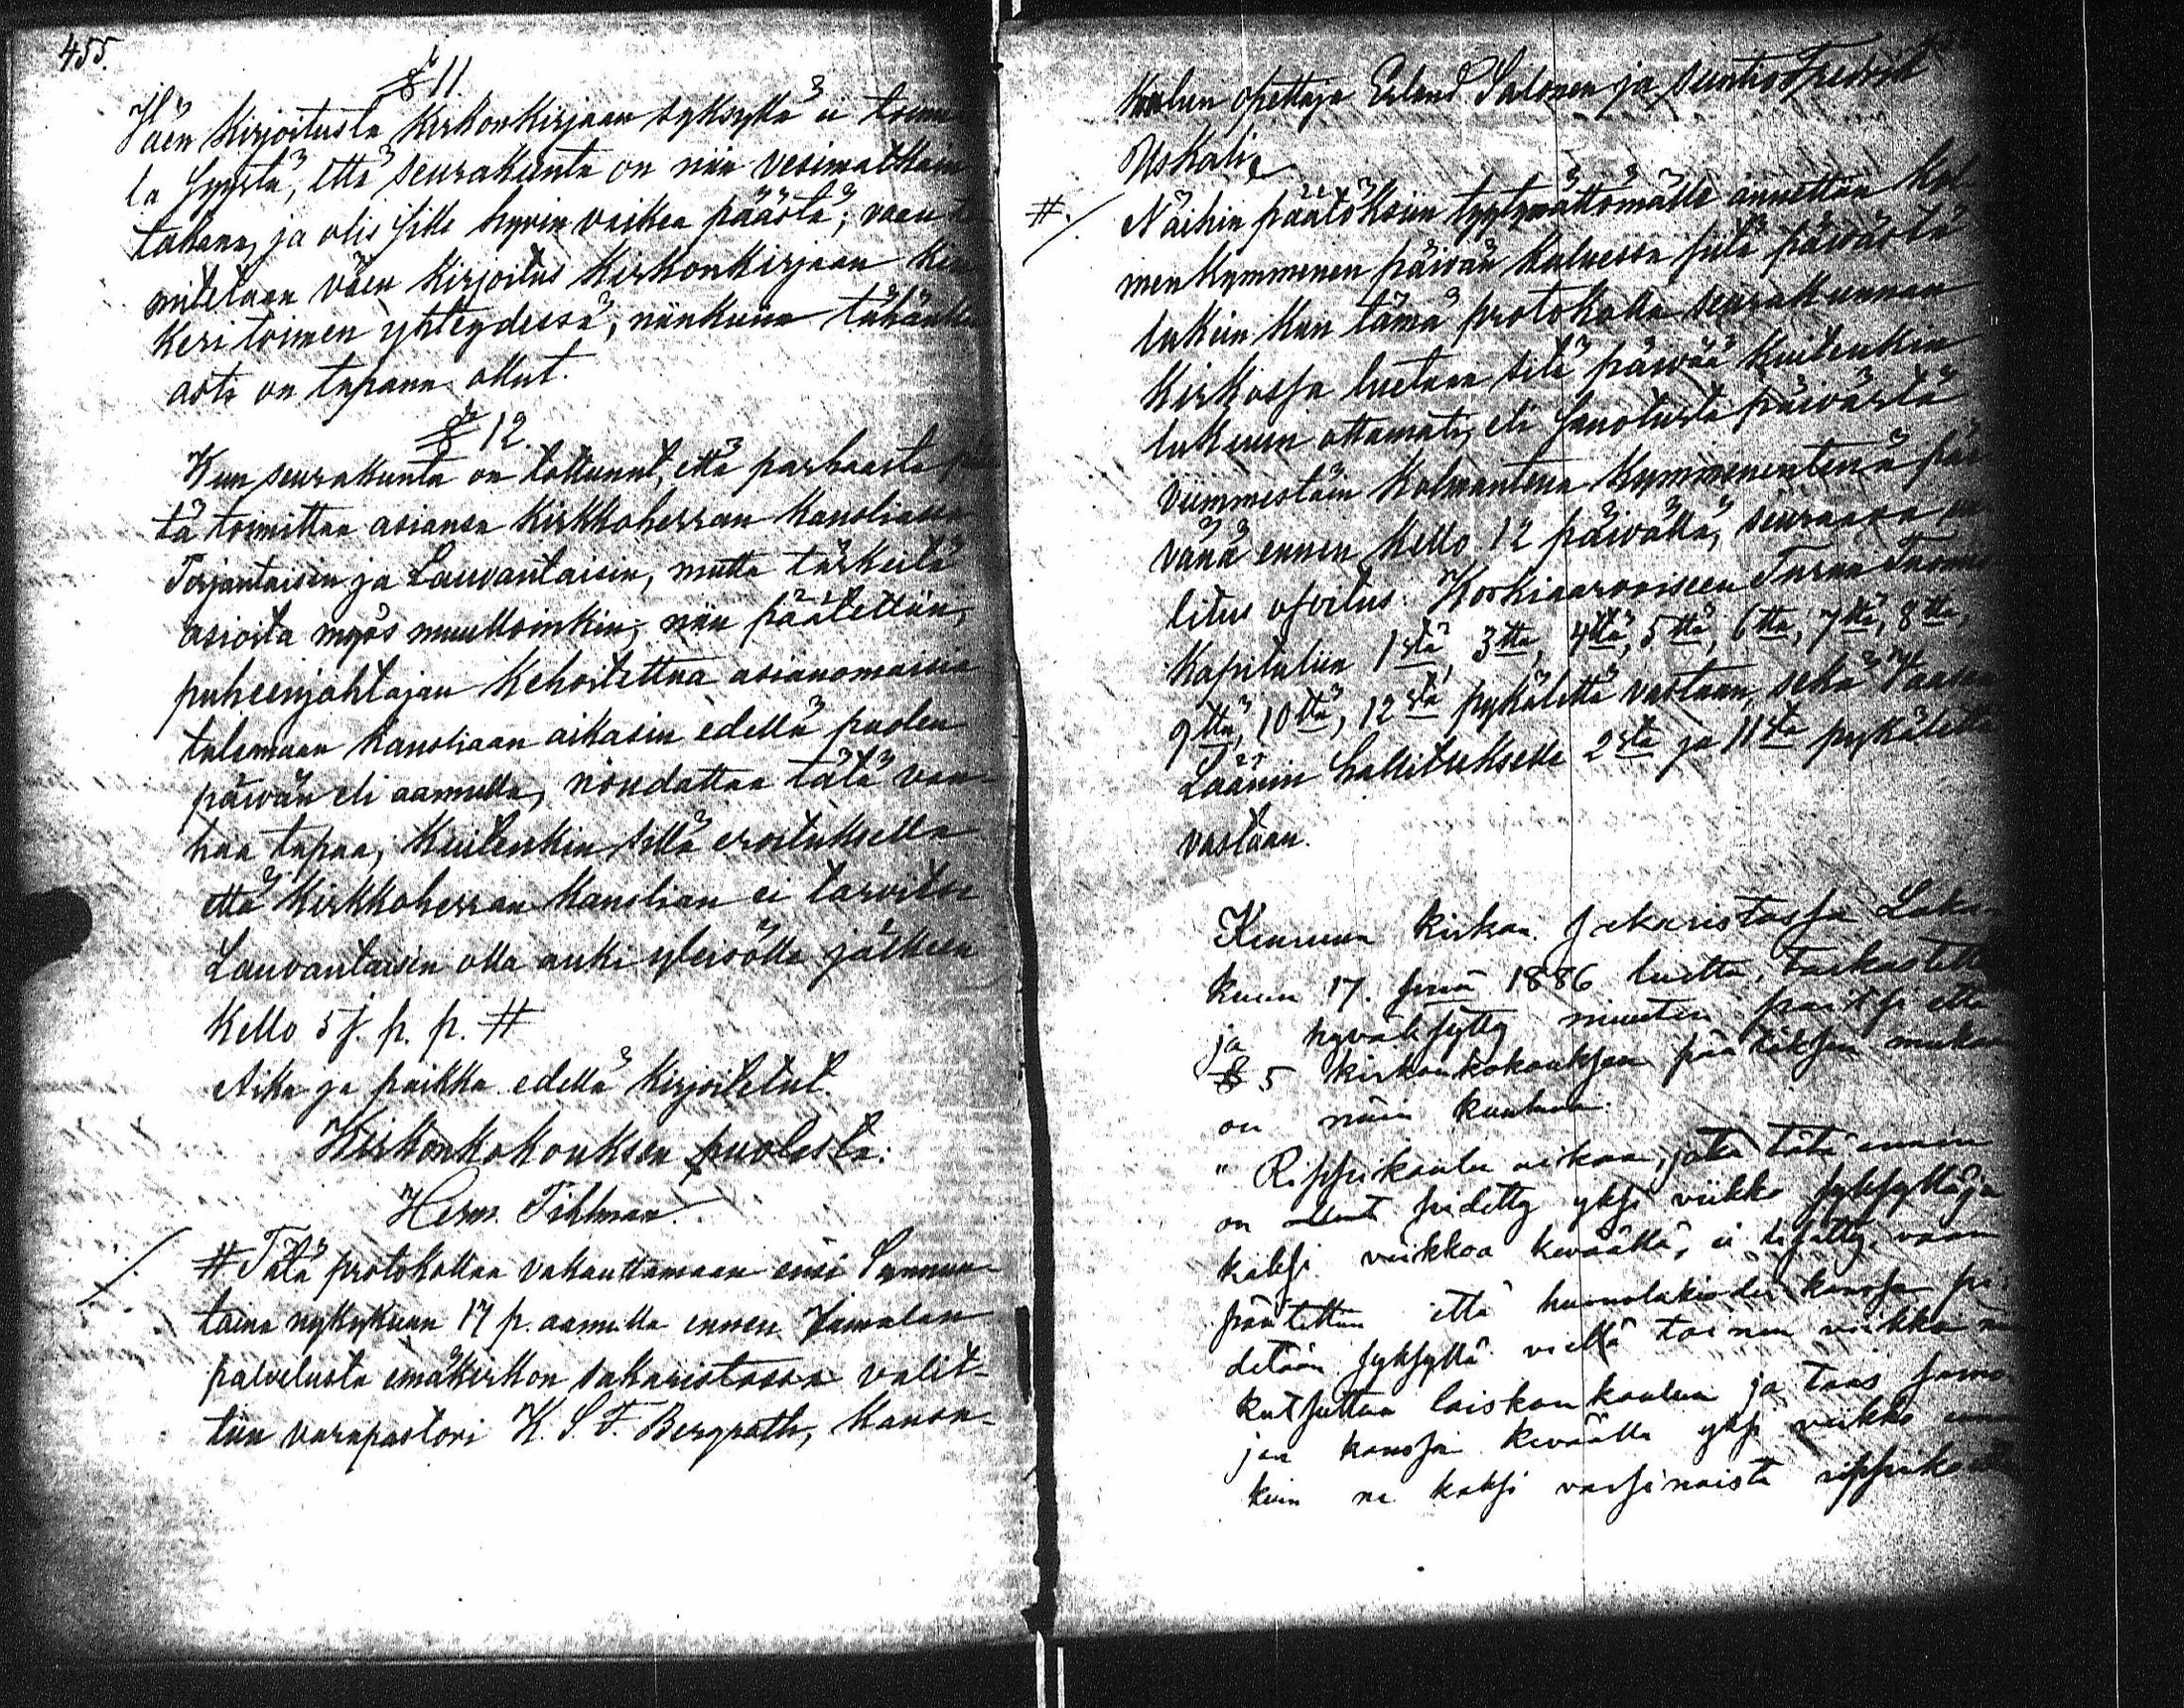 455.
§ 11
Väen Kirjoitusta Kirkonkirjaan syksyllä ei toimi
ta syystä, että seurakunta on niin vesimatkain
takana, ja olis sille hyvin vaikea päästä; vaan
mitetaan väen Kirjoitus Kirkonkirjaan Kin
keri toimen yhteydessä, niinkuin tähän
asti on tapana ollut.
§ 12.
Kun seurakunta on tottunut, että parhaasta
tä toimittaa asiansa Kirkkoherran Kansliassa
Torjantaisin ja Lauvantaisin, mutta tärkeitä
asioita myös muulloinkin, niin päätettiin,
puheenjohtajan Kehoitettua asianomaisia
tulemaan Kansliaan aikasin edellä puolen
päivän eli aamulla, noudattaa tätä van-
haa tapaa, Kuitenkin sillä eroituksella
että Kirkkoherran Kanslian ei tarvitse
Lauvantaisin olla auki yleisölle jälkeen
Kello 5 j. p. p. #
Aika ja paikka edellä Kirjoitetut.
Kirkonkokouksen puolesta:
Herm. Tihlman.
·/. # Tätä protokollaa vakauttamaan ensi Sunnun-
taina nykykuun 17 p. aamulla ennen Jumalan
palvelusta emäkirkon sakaristossa valit-
tiin varapastori K. S. F. Bergroth, Kanon-
Koulun opettaja Erland Salonen ja suntio Fredrik
Uskali.
#./. Näihin päätöksiin tyytymättömälle annettiin Kol-
menkymmenen päivän Kuluessa siitä päivästä
lukein Kun tämä protokolla seurakunnan
Kirkossa luetaan sitä päivää Kuitenkin
lukuun ottamata, eli sanotusta päivästä
viimmestäin Kolmantena Kymmenentenä päi
vänä ennen Kello 12 päivällä, seuraava va
litus osoitus: Korkiaarvoiseen Turun Tuomio
Kapituliin 1stä, 3tta, 4ttä, 5ttä, 6tta, 7ttä, 8tta,
9ttä, 10ttä, 12sta pykälettä vastaan, sekä Vaasan
Läänin hallitukselle 2sta ja 11sta pykälettä
vastaan.
Keuruun kirkon sakaristossa Loka-
kuun 17. p:nä 1886 luettu, tarkastettu
ja hyväksytty muuten paitsi että
§ 5 kirkonkokouksen päätöksen mukaan
on näin kuuluva:
" Rippikoulu aikaa, jota tätä ennen
on pidetty yksi viikko syksyllä ja
kaksi viikkoa keväällä, ei lisätty, vaan
päätettiin että huonolukioiden kanssa pi-
detään syksyllä vielä toinen viikko
kutsuttua laiskan koulua ja taas samo-
jen kanssa keväällä yksi viikko
kuin ne kaksi varsinaista rippikoulu